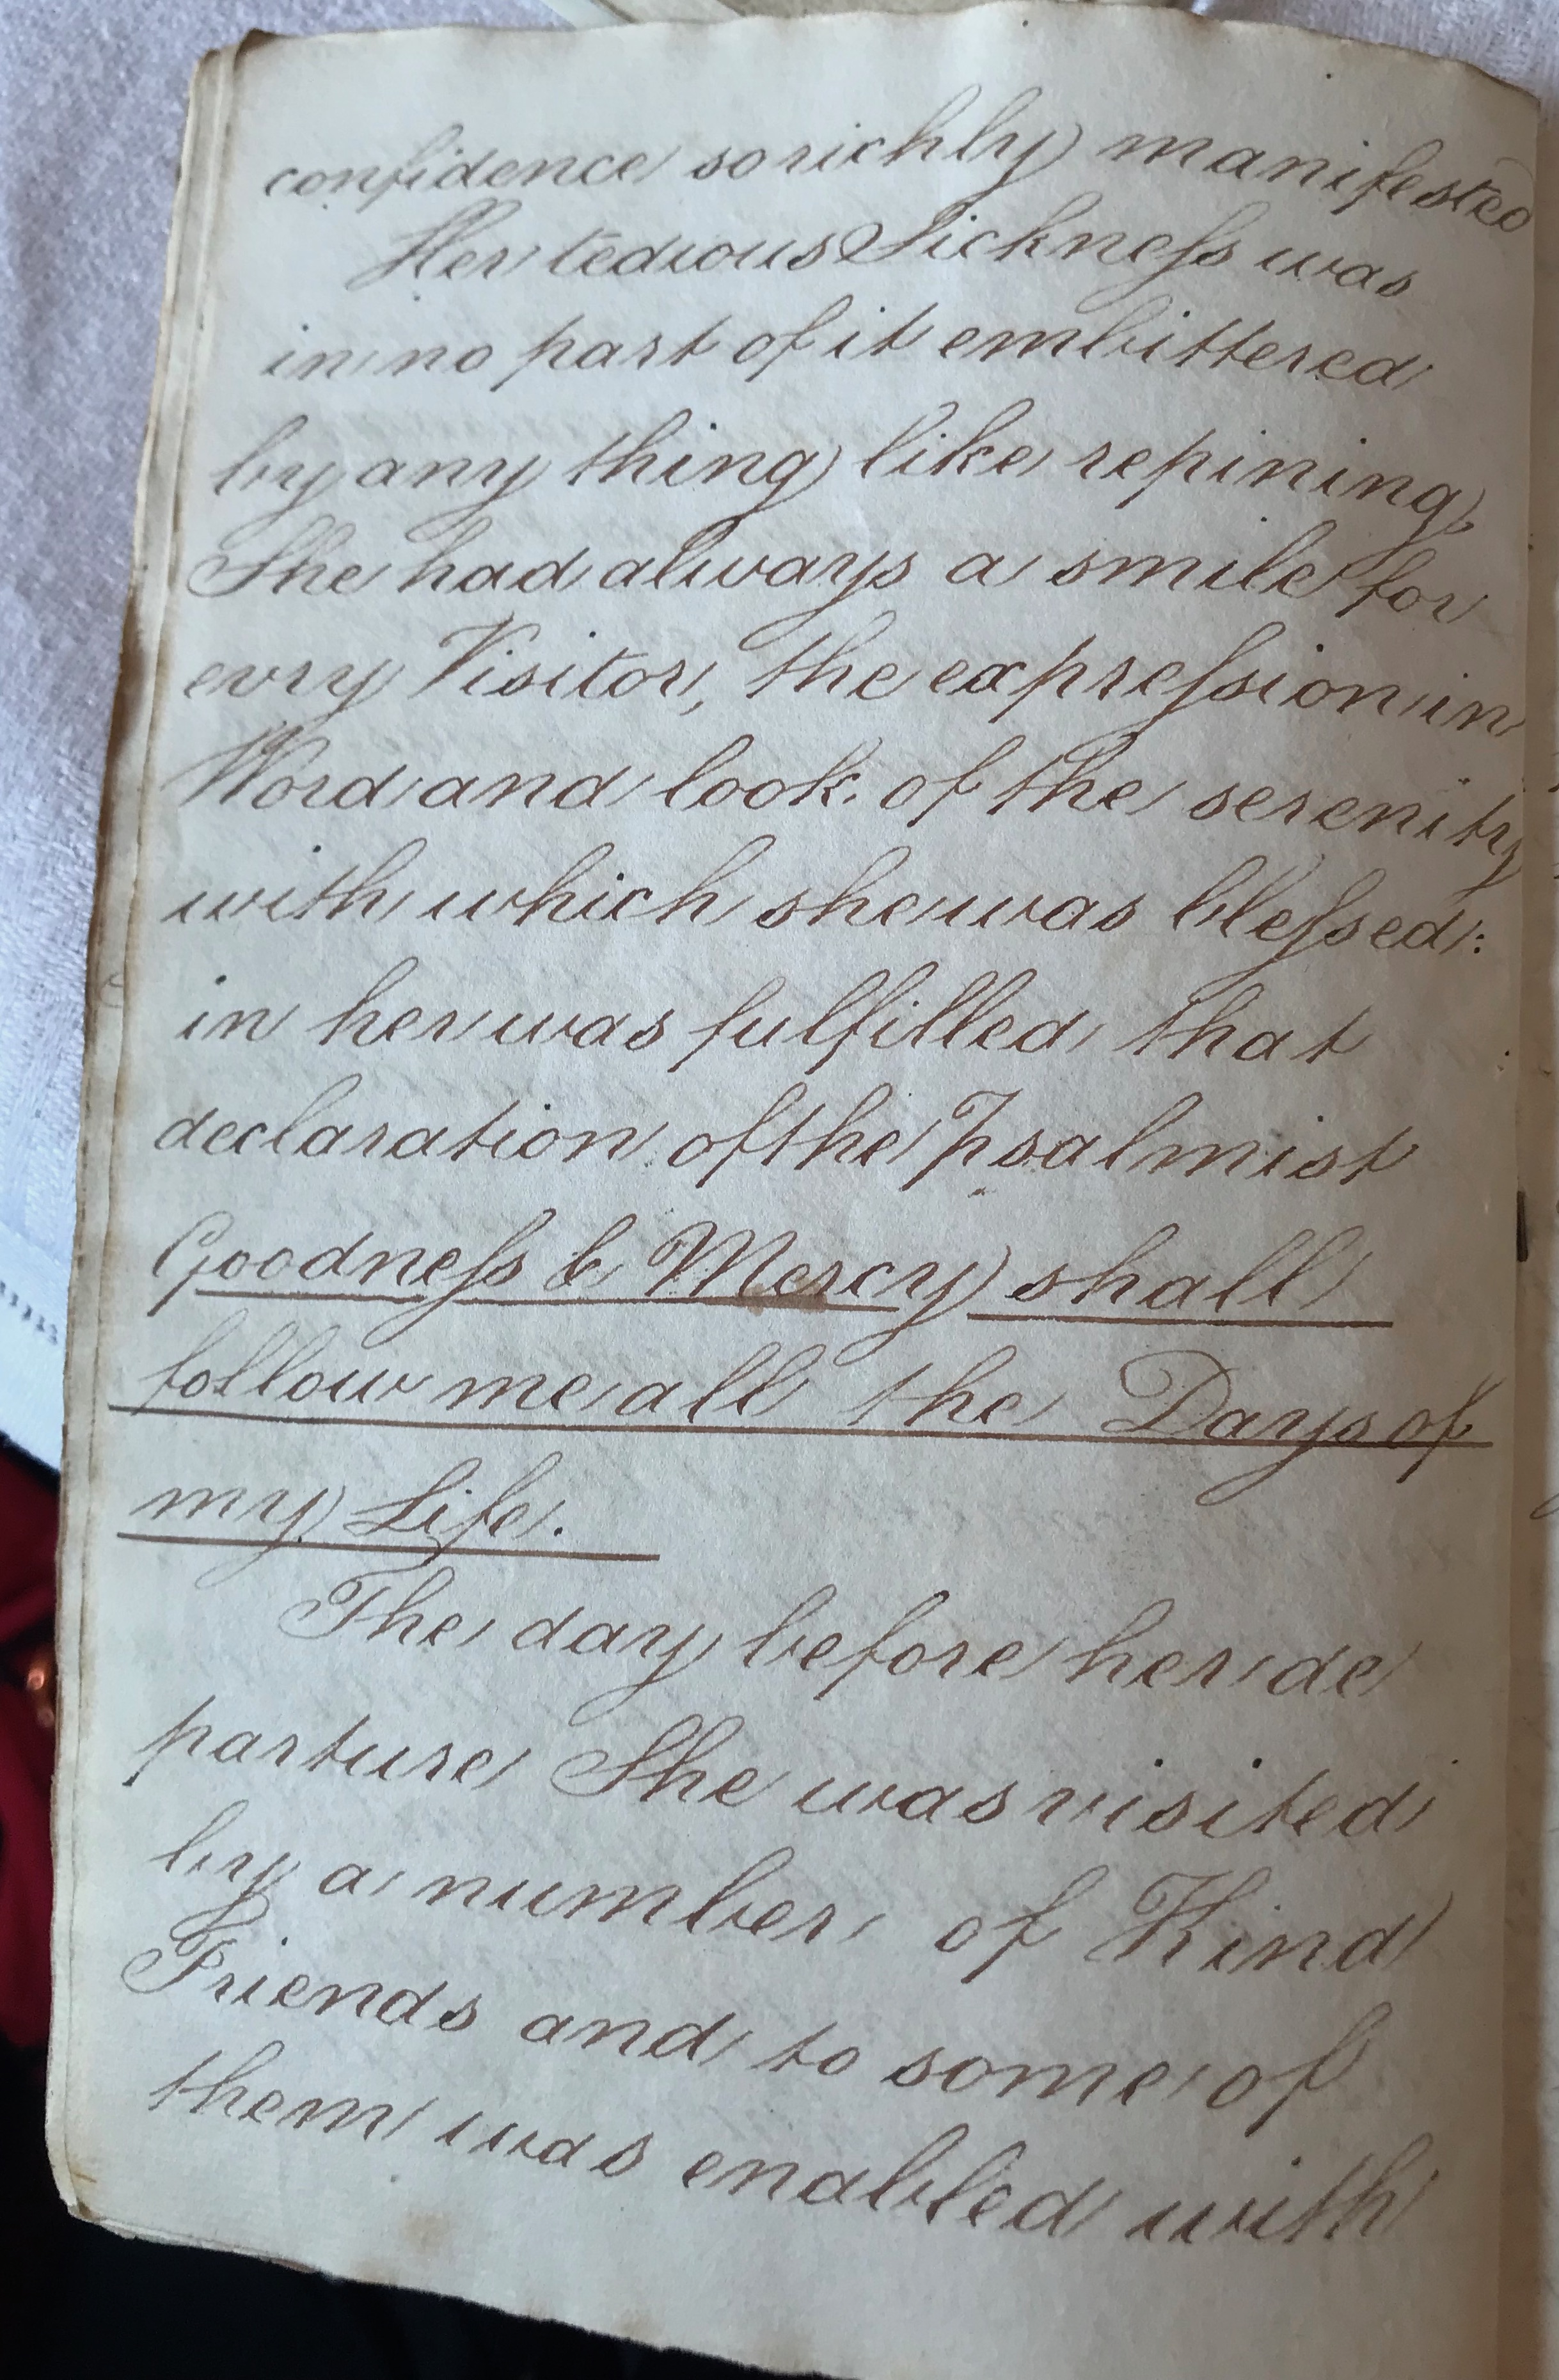 confidence so richly manifested
Her tedious Sickneſs was
in no part of it embittered
by any thing like repining
She had always a smile for
evry Visitor, the expreſsion in
Word and look of the serenity
with which she was bleſsed:
in her was fulfilled that
declaration of the Psalmist
Goodneſs & Mercy shall
follow me all the Days of
my Life.
The day before her de
parture She was visited
by a number of Kind
Friends and to some of
them was enabled with